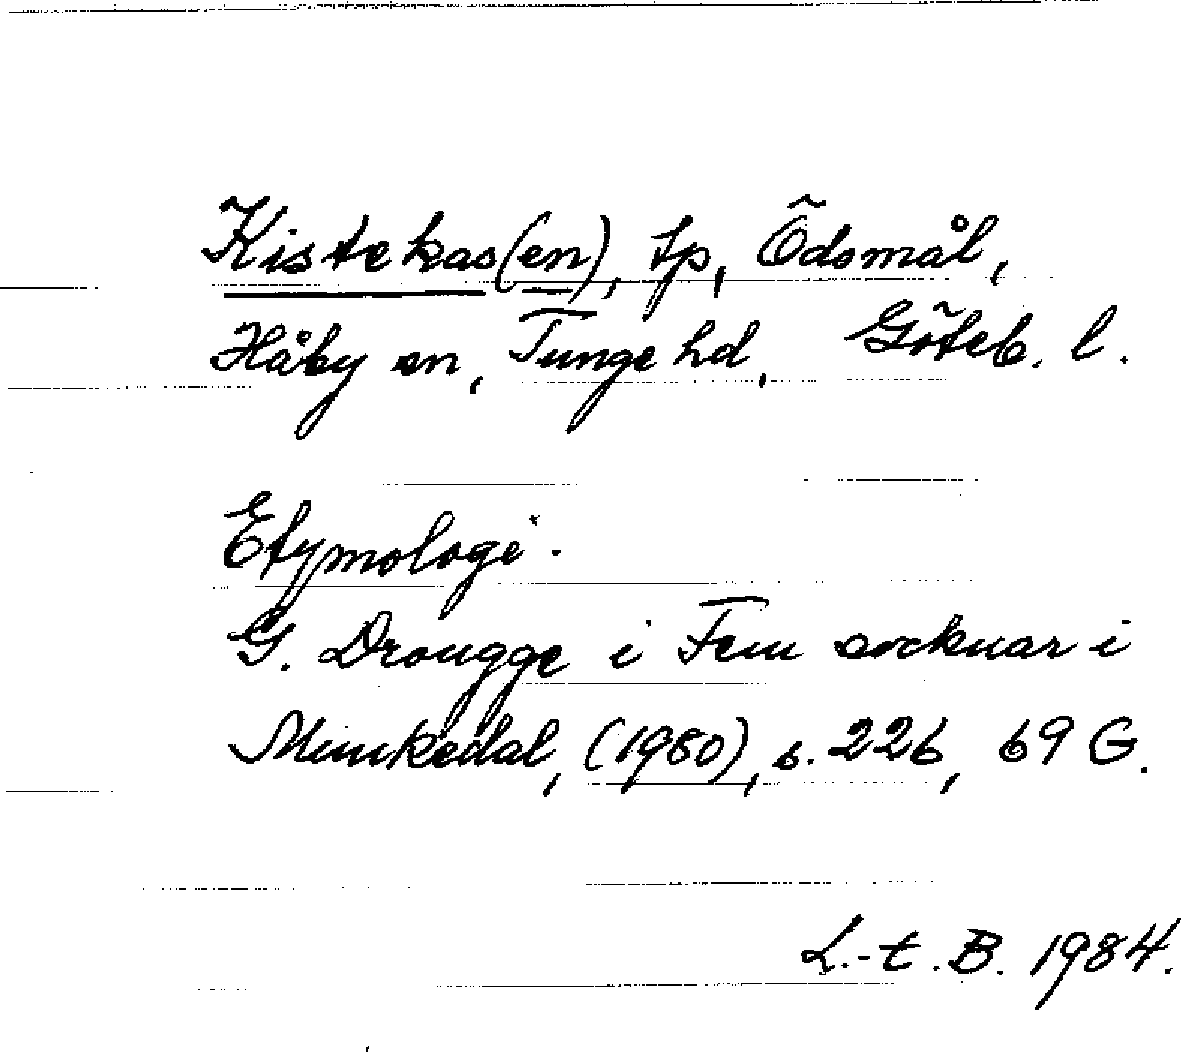 Kistekas(en), tp, Ödsmål,
Håby sn, Tunge hd, Göteb. l.
Etymologi.
G. Drougge i Fem socknar i
Munkedal, (1980), s. 226, 69 G.
L.-t. B. 1984.